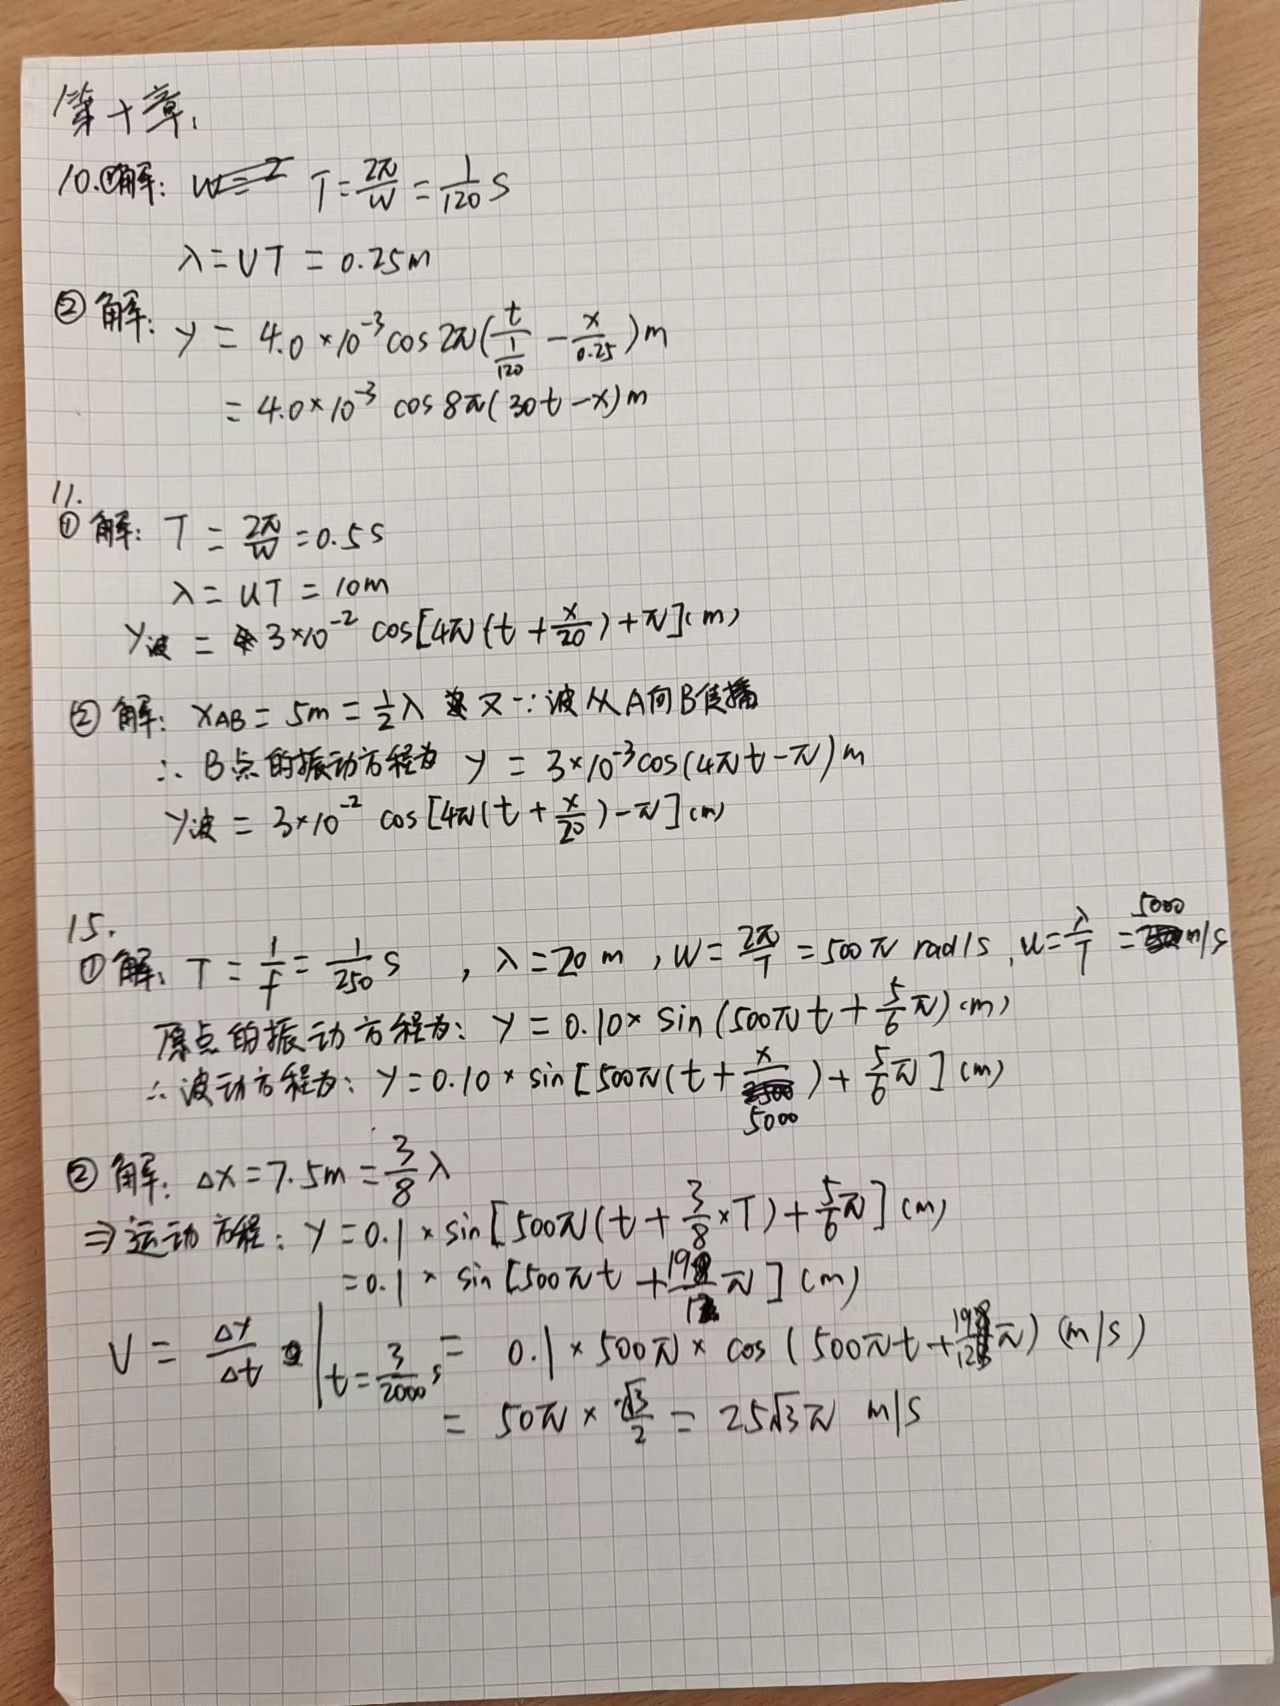 第十章.
10.①解: T=2π/W=1/120 s
λ=UT=0.25m
②解: y=4.0×10⁻³cos2π(t/(1/120)-x/0.25)m
=4.0×10⁻³ cos8π(30t-x)m
11.
①解: T=2π/W=0.5s
λ=uT=10m
y波=3×10⁻² cos[4π(t+x/20)+π](m)
②解: xAB=5m=1/2λ 又∵波从A向B传播
∴B点的振动方程为 y=3×10⁻³cos(4πt-π)m
y波=3×10⁻² cos[4π(t+x/20)-π](m)
15.
①解: T=1/f=1/250 s, λ=20m, W=2π/T=500π rad/s, u=λ/T=5000m/s
原点的振动方程为: y=0.10×sin(500πt+5/6π)(m)
∴波动方程为: y=0.10×sin[500π(t+x/5000)+5/6π](m)
②解: Δx=7.5m=3/8λ
⇒运动方程: y=0.1×sin[500π(t+3/8×T)+5/6π](m)
=0.1×sin[500πt+19/12π](m)
V=Δy/Δt|t=3/2000s=0.1×500π×cos(500πt+19/12π)(m/s)
=50π×√3/2=25√3π m/s